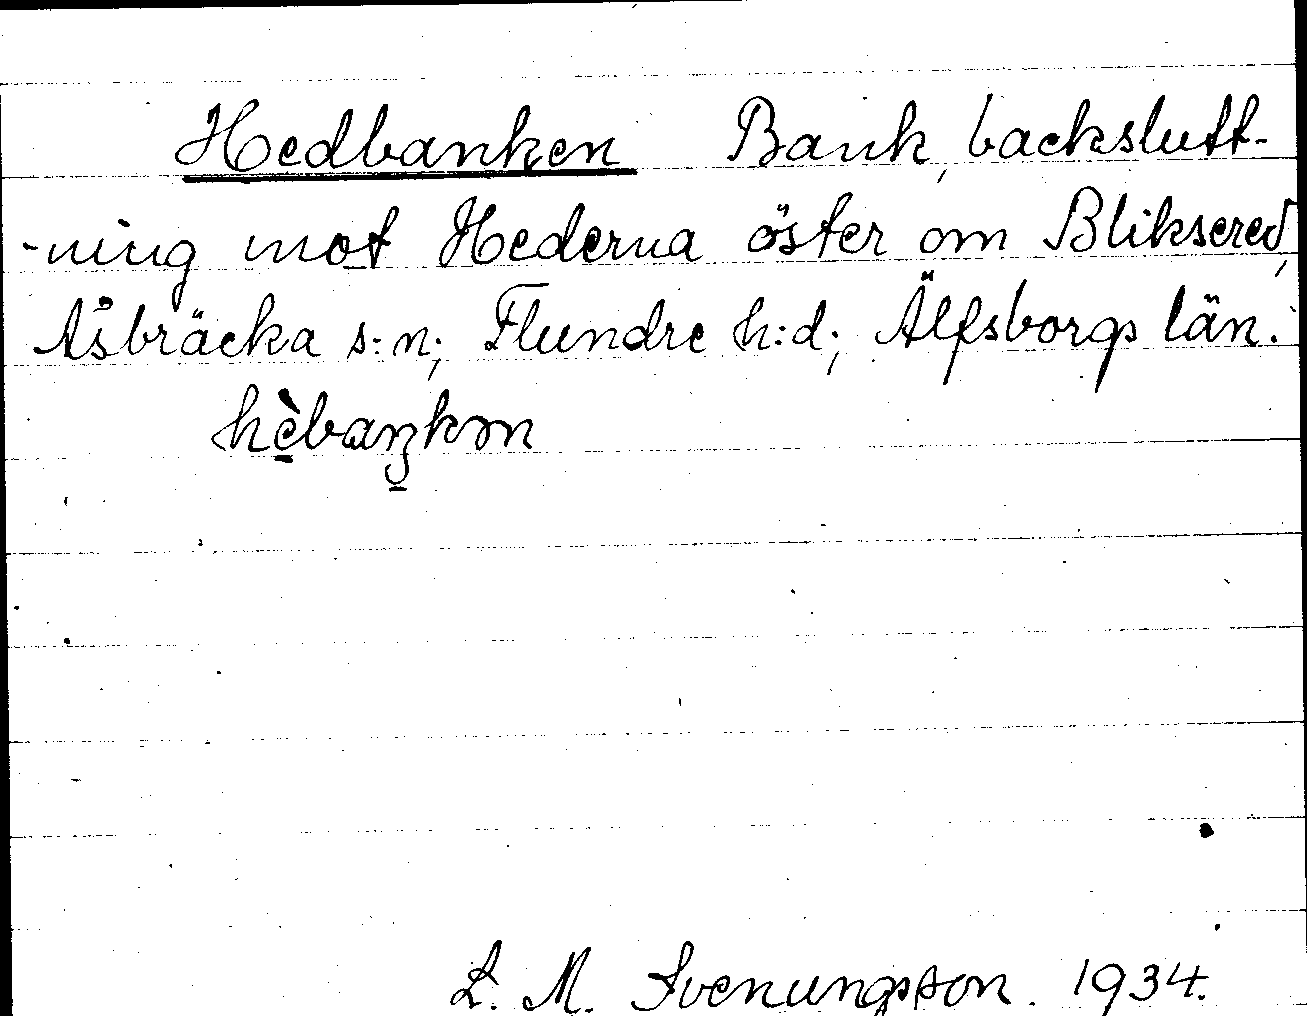 Hedbanken Bank, backslutt-
-ning mot Hederna öster om Bliksered,
Åsbräcka s:n; Flundre h:d; Älfsborgs län.
hèbaŋkɷn
L. M. Svenungsson. 1934.